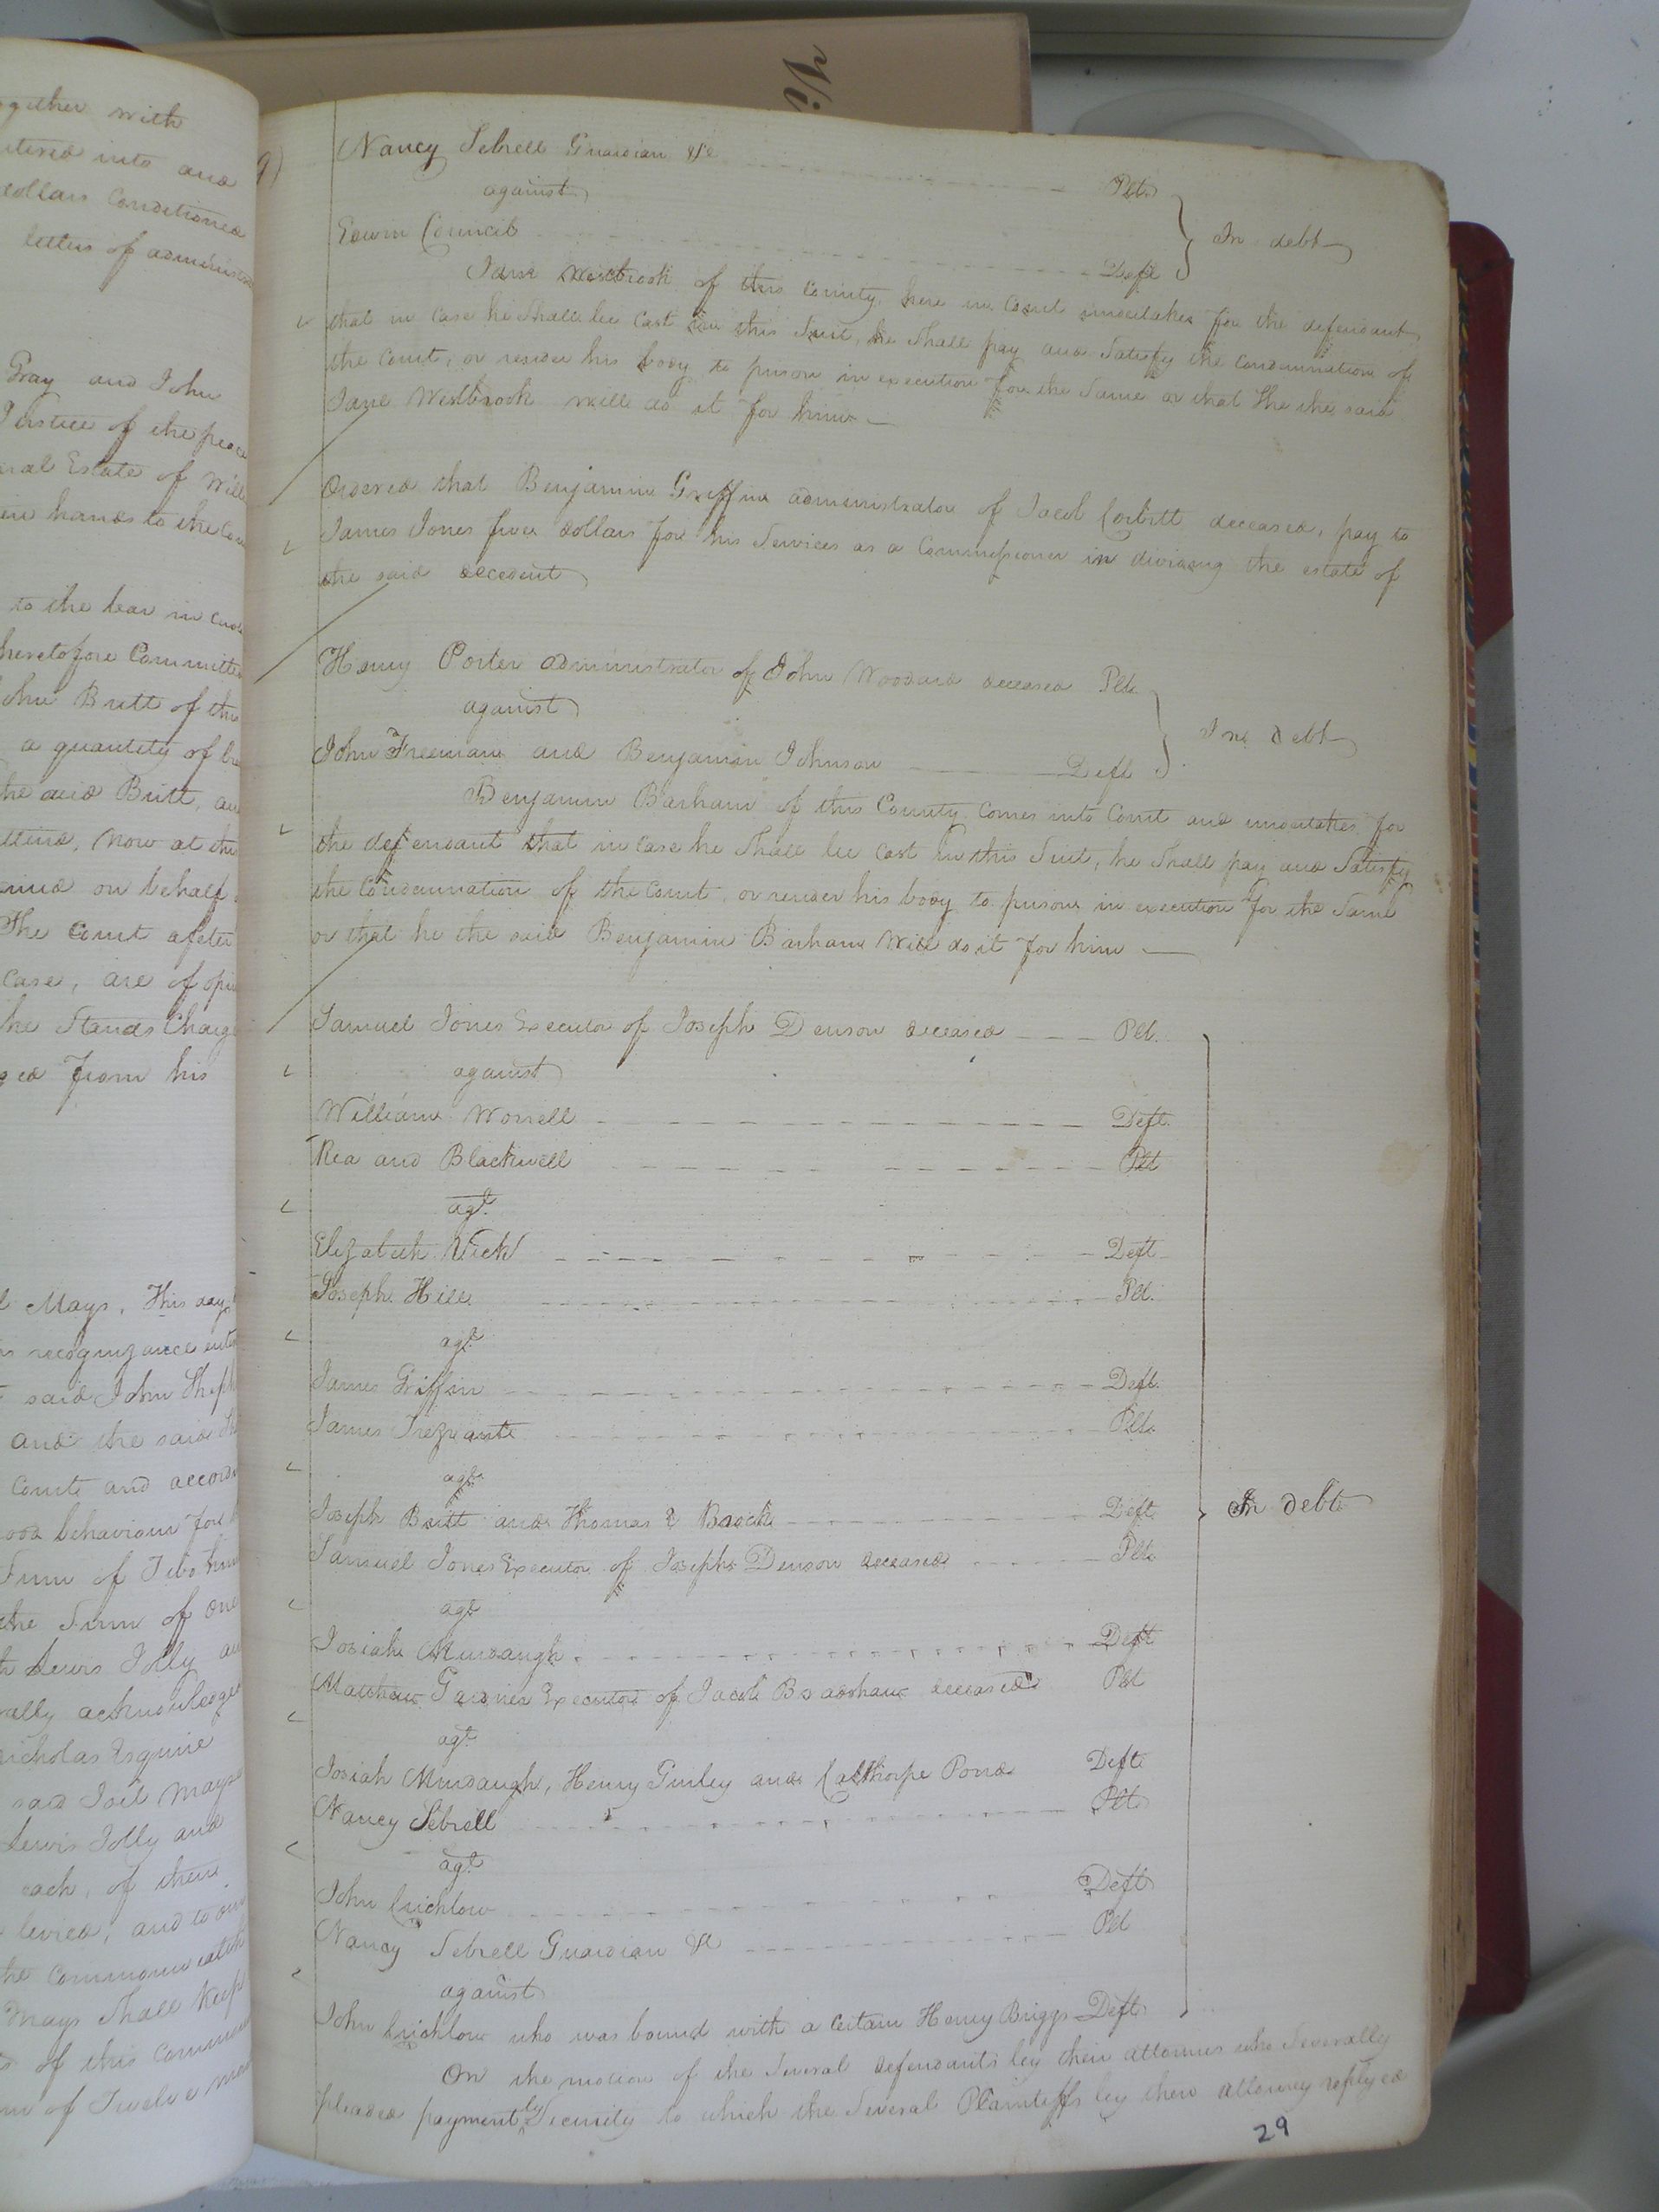 gether with
ntered into and
dollars Conditioned
letters of administra
Gray and John
Justice of the peace
Estate of Will
hands to the Com
to the bar in cus
heretofore Committe
John Britt of this
a quantity of b
he said Britt, an
ttend, Now at the
mined on behalf
The Court after
Case, are of opin
he Stands Charg
ged from his
Mays, This day
recognizance ente
said John Sheph
and the said
Court and accord
good behaviour for
Sum of Two hun
the Sum of one
Lewis Jolly an
rally acknowledge
Nicholas Esquire
said Joel Mays
Lewis Jolly and
each, of their
levied, and to our
the Commonwealth
Mays Shall Keep
of this Common
of Twelve mon
9)
Nancy Sebrell Guardian &c Plt.
against
Edwin Council Deft
In debt
Jane Westbrook of this County here in Court undertakes for the defendant
that in Case he Shall be Cast in this Suit, he Shall pay and Satisfy the Condemnation of
the Court, or render his body to prison in execution for the Same or that the said
Jane Westbrook will do it for him
Ordered that Benjamin Griffin administrator of Jacob Corbitt deceased, pay to
James Jones five dollars for his Services as a Commissioner in dividing the estate of
the said decedent
Henry Porter administrator of John Woodard deceased Plt.
against
In debt
John Freeman and Benjamin Johnson Deft
Benjamin Barham of this County Comes into Court and undertakes for
the defendant that in Case he Shall be Cast in this Suit, he Shall pay and Satisfy
the Condemnation of the Court, or render his body to prison in execution for the Same
or that he the said Benjamin Barham Will do it for him
Samuel Jones Executor of Joseph Denson deceased Plt.
against
William Worrell Deft.
Rea and Blackwell Plt
agt.
Elizabeth Vick Deft
Joseph Hill Plt.
agt.
James Griffin Deft.
James Trezvant Plt.
agt.
Joseph Britt and Thomas Brock Deft.
In debt
Samuel Jones Executor of Joseph Denson deceased Plt.
agt.
Josiah Murdaugh Deft
Matthew Gardner Executor of Jacob Bradshaw deceased Plt
agt.
Josiah Murdaugh, Henry Gurley and Calthorpe Pond Deft.
Nancy Sebrell Plt.
agt.
John Crichlow Deft
Nancy Sebrell Guardian &c Plt
against
John Crichlow who was bound with a Certain Henry Briggs Deft
On the motion of the Several defendants by their attornies who Severally
pleaded payment by Security to which the Several Plaintiffs by their attorney replyed
29